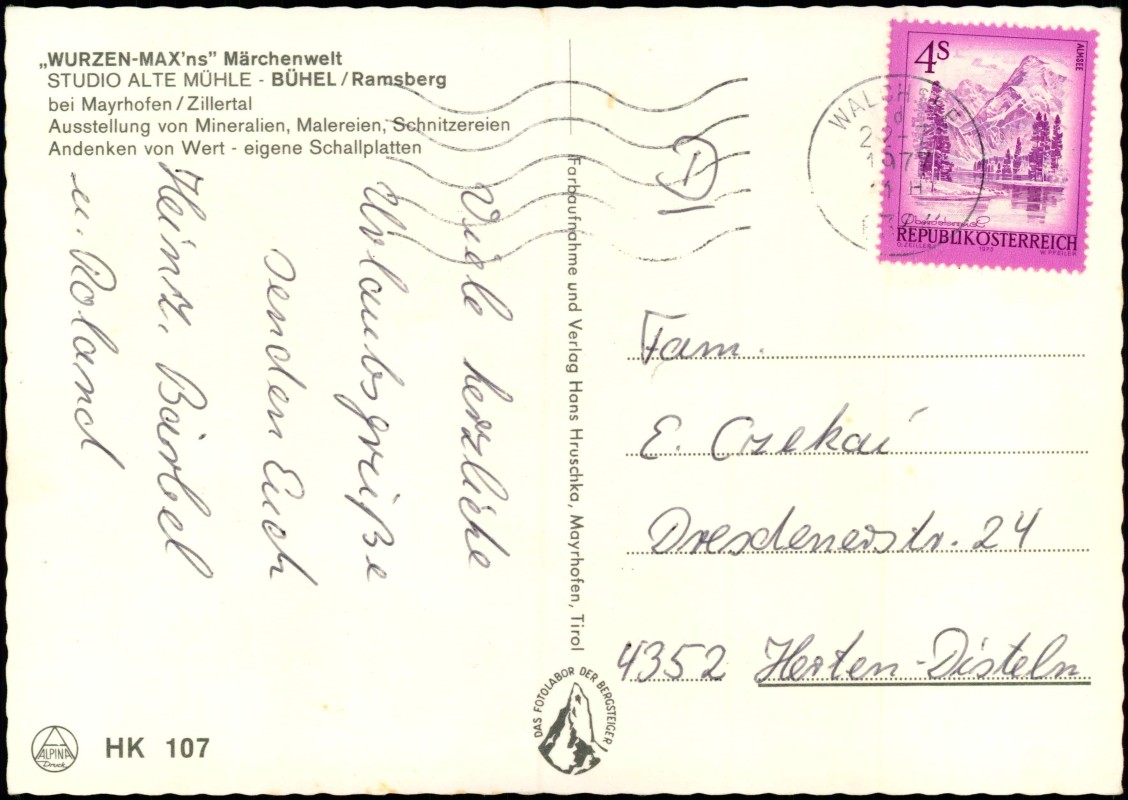 „WURZEN-MAX'ns” Märchenwelt
STUDIO ALTE MÜHLE - BÜHEL/Ramsberg
bei Mayrhofen/Zillertal
Ausstellung von Mineralien, Malereien, Schnitzereien
Andenken von Wert - eigene Schallplatten
Viele herzliche
Urlaubsgrüße
senden Euch
Heinz, Bärbel
u. Roland
Farbaufnahme und Verlag Hans Hruschka, Mayrhofen, Tirol
DAS FOTOLABOR DER BERGSTEIGER
ALPINA
Druck
HK 107
I
4S
ALMSEE
Oberösterreich
REPUBLIK ÖSTERREICH
O.ZEILLER 1973 W.PFEILER
1979
Fam.
E. Czekai
Dresdenerstr. 24
4352 Herten-Disteln